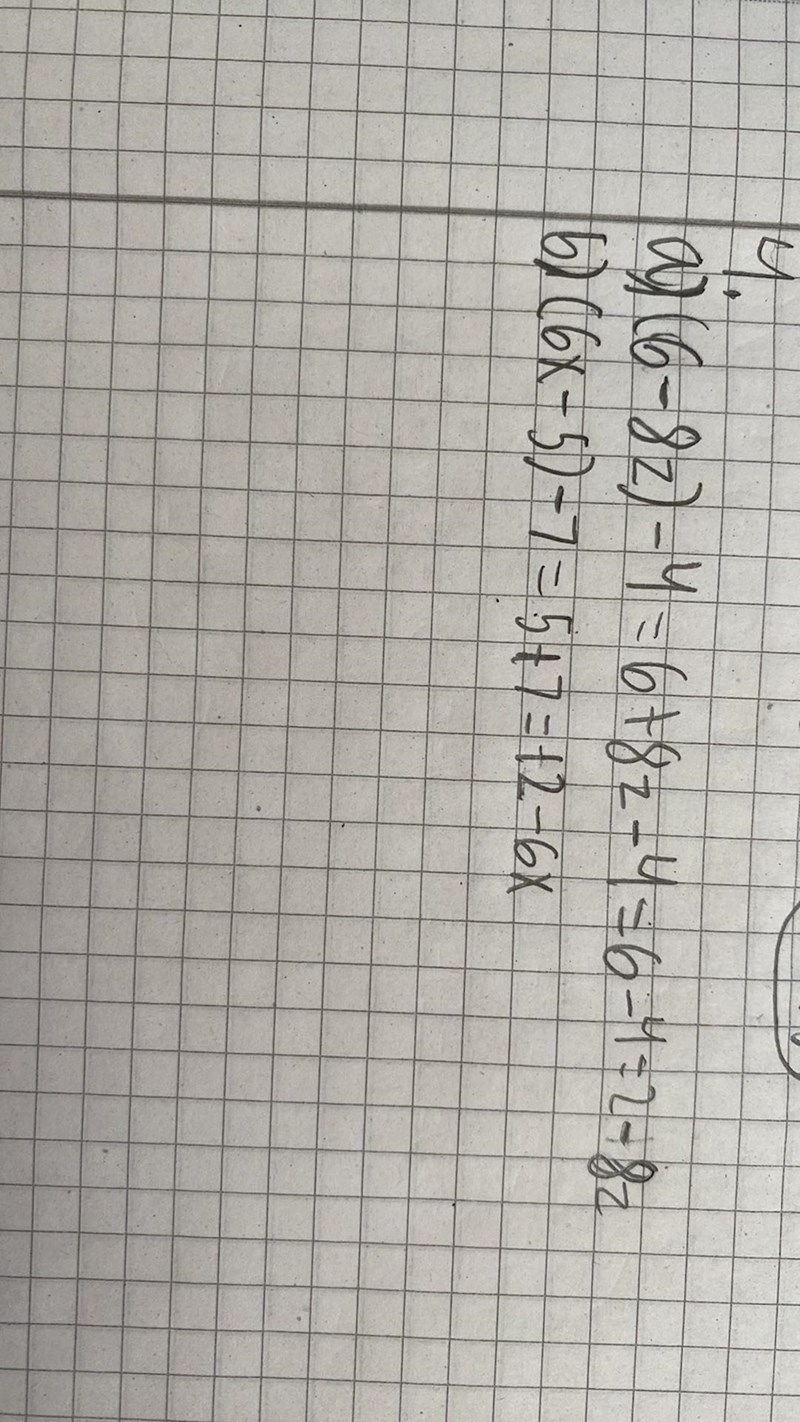 4.
a) (6-8z)-4=6+8z-4=6-4=2-8z
b) (6x-5)-7=5+7=12-6x